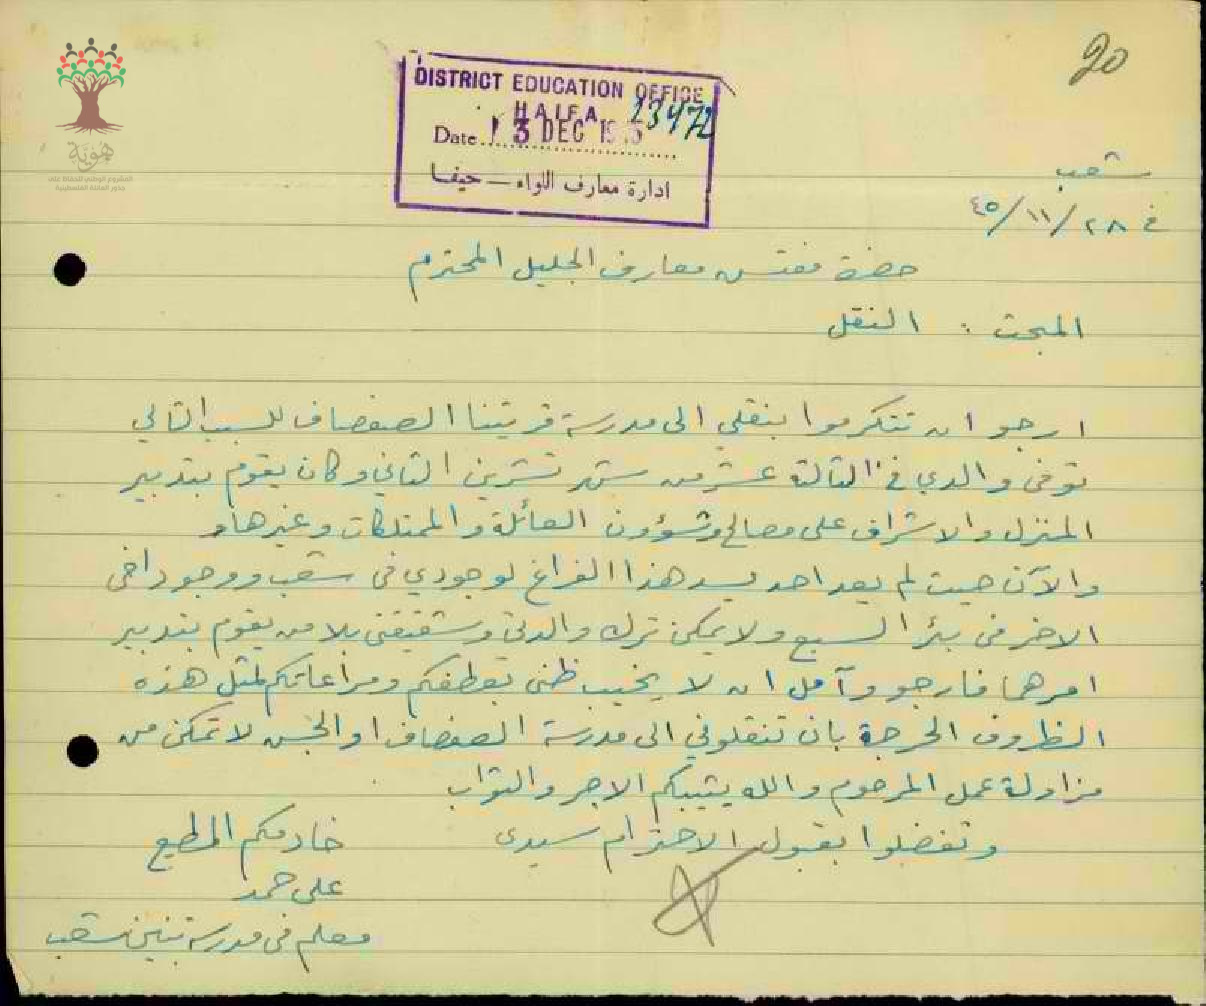 20
هوية
المشروع الوطني للحفاظ على
جذور العائلة الفلسطينية
DISTRICT EDUCATION OFFICE
HAIFA 23472
Date 13 DEC 1945
ادارة معارف اللواء — حيفا
شعب
في ٢٨/١١/٤٥
حضرة مفتش معارف الجليل المحترم
المبحث : النقل
ارجو ان تتكرموا بنقلي الى مدرسة قريتنا الصفصاف للسبب التالي
توفى والدي في الثالثة عشر من شهر تشرين الثاني وكان يقوم بتدبير
المنزل والاشراف على مصالح وشؤون العائلة والممتلكات وغيرها و
والآن حيث لم يعد احد يسد هذا الفراغ لوجودي في شعب ووجود اخي
الاخر في بئر السبع ولا يمكن ترك والدتي وشقيقتي بلا من يقوم بتدبير
امرهما فارجو وآمل ان لا يخيب ظني بعطفكم ومراعاتكم لمثل هذه
الظروف الحرجة بان تنقلوني الى مدرسة الصفصاف او الجش لاتمكن من
مزاولة عمل المرحوم والله يثيبكم الاجر والثواب
وتفضلوا بقبول الاحترام سيدى
خادمكم المطيع
على حمد
معلم في مدرسة بنين شعب